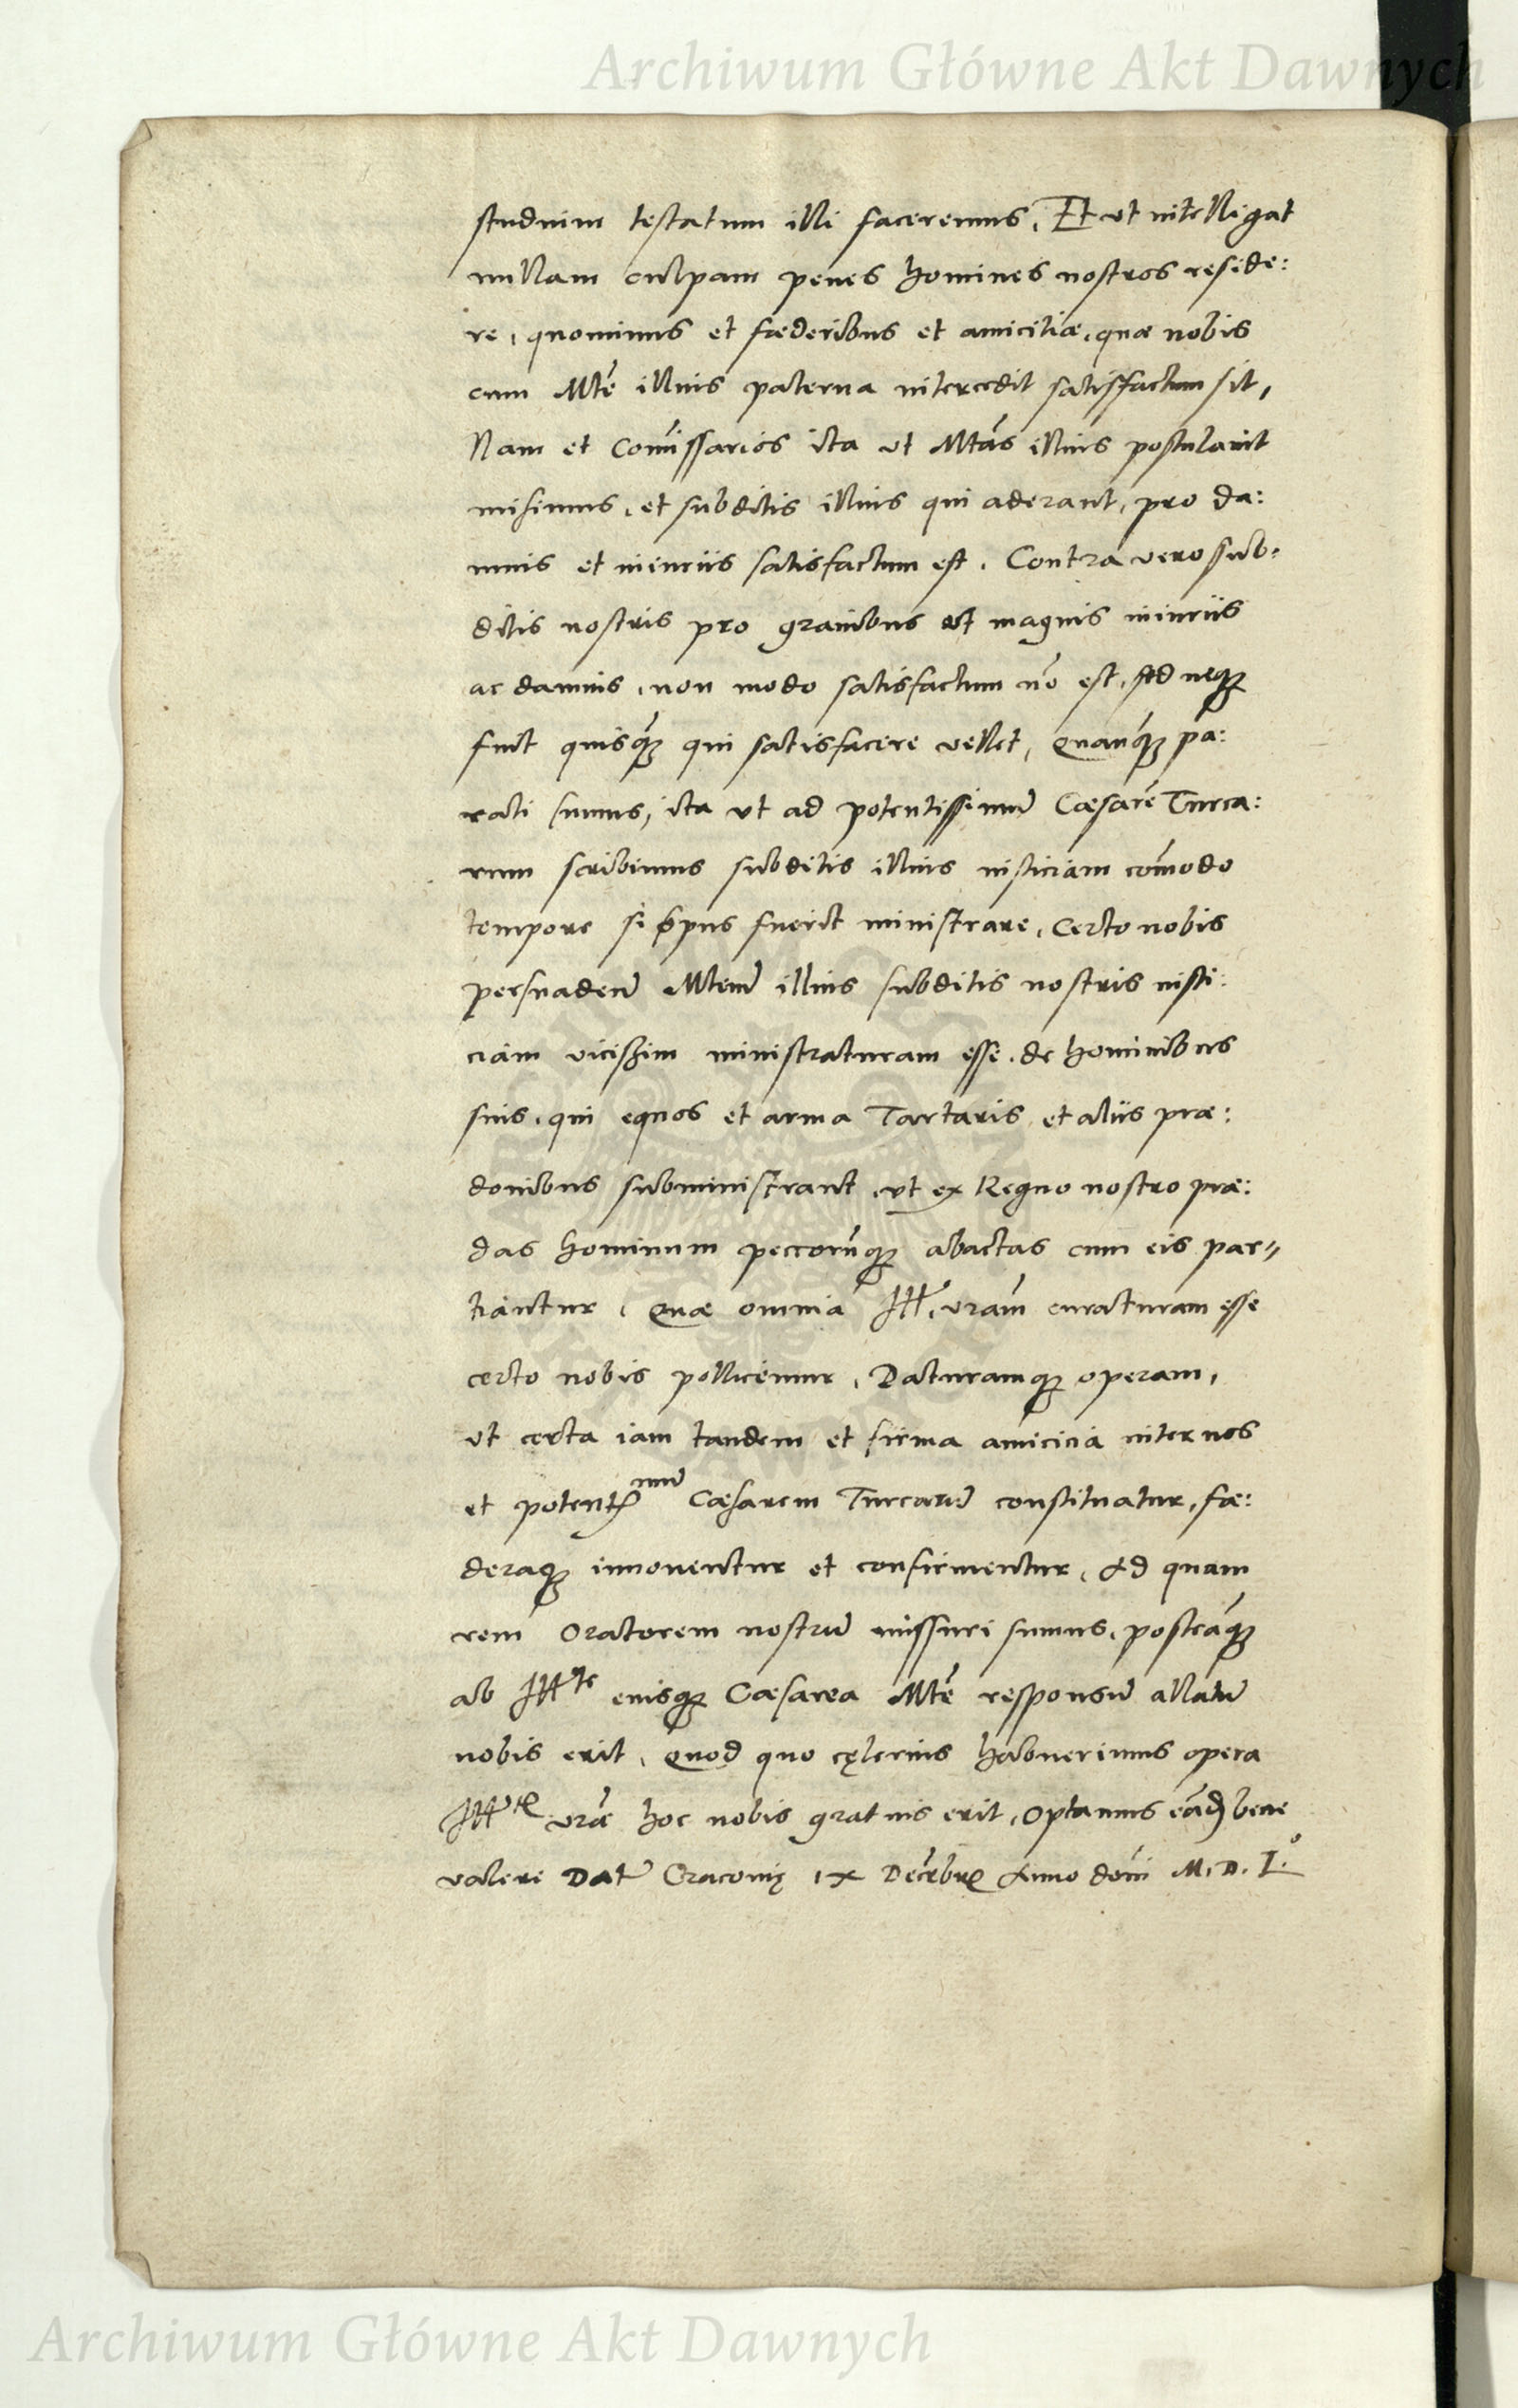 Archiwum Główne Akt Dawnych
studium testatum illi faceremus. Et ut intelligat
nullam culpam penes homines nostros reside:
re, quominus et fæderibus et amicitiæ, quæ nobis
cum Mte͂ illius paterna intercedit satisfactum sit,
Nam et Com̃issarios ita ut Mtas illius postulavit
misimus, et subditis illius qui aderant, pro da:
mnis et iniuriis satisfactum est. Contra vero sub-
ditis nostris pro gravibus et magnis iniuriis
ac damnis, non modo satisfactum nõ est, sed neq;
fuit quisq̃; qui satisfacere vellet, Quanq̃; pa:
rati sumus, ita ut ad potentissimũ Cæsarẽ Turca:
rum scribimus subditis illius iusticiam com̃odo
tempore si opus fuerit ministrare, Certo nobis
persuadem9 Mtem̃ illius subditis nostris iusti:
ciam vicissim ministraturam esse, de hominibus
suis, qui equos et arma Tartaris et aliis præ:
donibus subministrant, ut ex Regno nostro præ:
das hominum pecorũq; abactas cum eis par-
tiantur, Quæ omnia Ill. vram̃ curaturam esse
certo nobis pollicemur, Daturamq; operam,
ut certa iam tandem et firma amicicia inter nos
et potentiss mũ Cæsarem Turcarũ constituatur, fæ:
deraq; innoventur et confirmentur, Ad quam
rem Oratorem nostrũ missuri sumus, posteaq̃;
ab Illte eiusq; Cæsarea Mte͂ responsũ allatũ
nobis erit, Quod quo cęlerius habuerimus opera
Illtis vræ̃ hoc nobis gratius erit, Optamus eãd bene
valere Dat̃ Cracovię ix Decẽbris Anno dom̃i M.D.L.o
Archiwum Główne Akt Dawnych